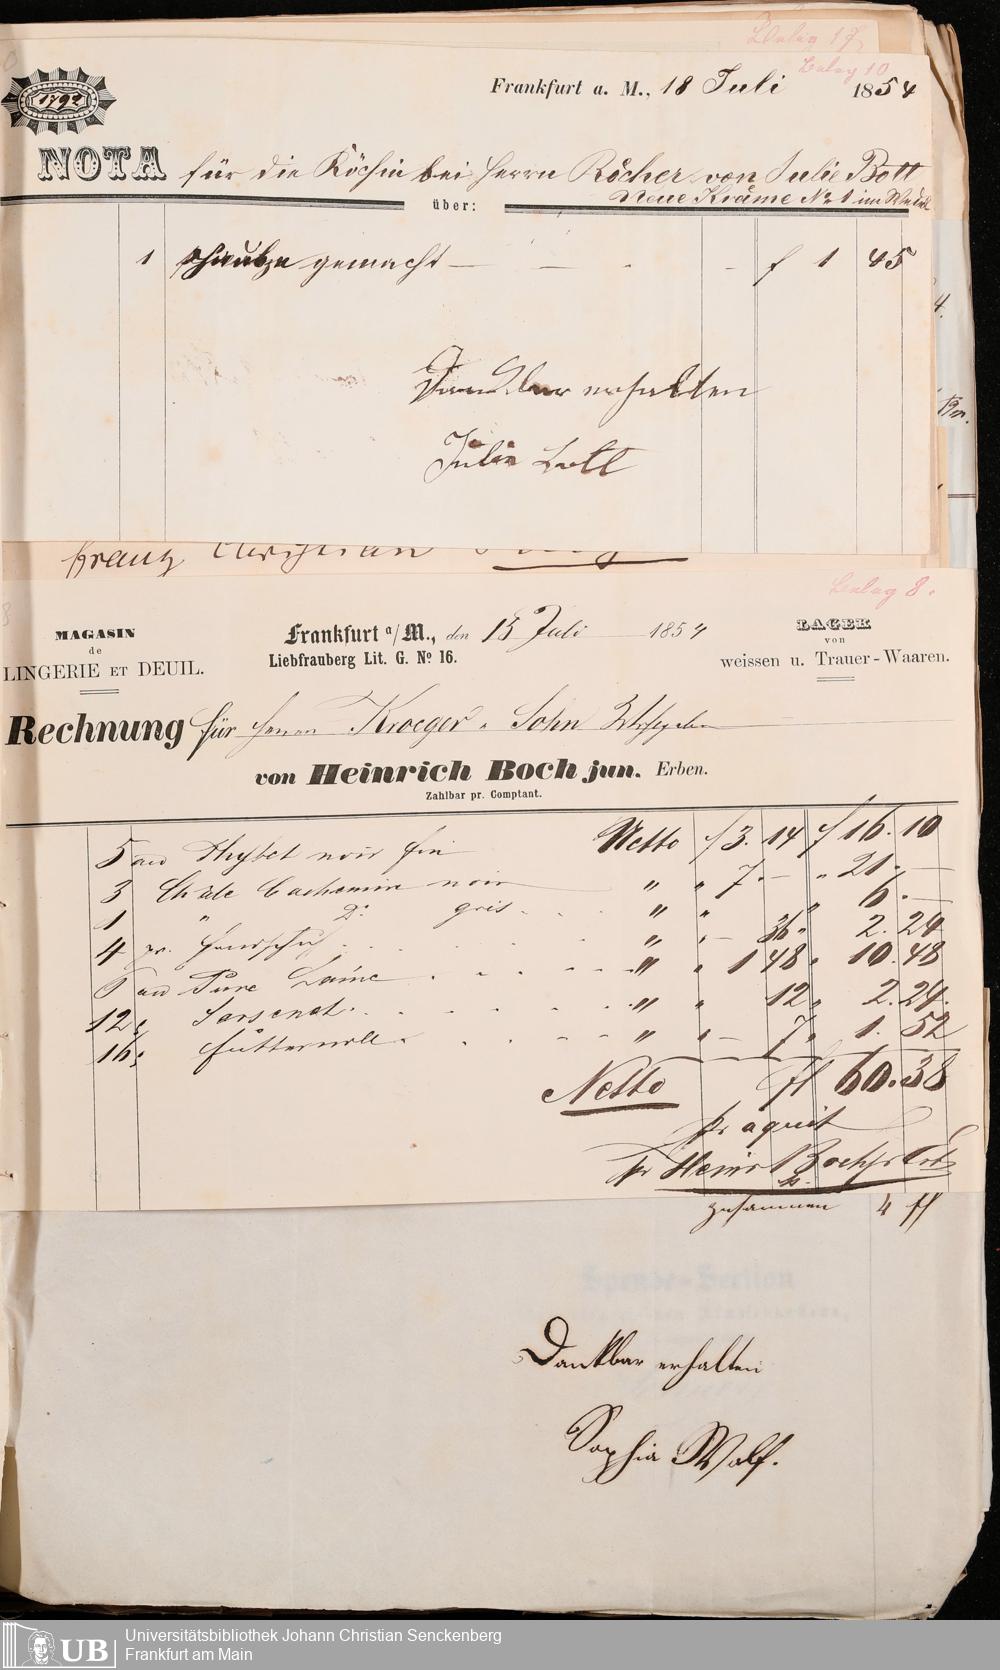 Beleg 17
Beleg 10
1792
Frankfurt a. M., 18 Juli 1854
NOTA für die Köchin bei Herrn Röcher von Julie Bott
Neue Kräme No 1 im Wedel
über:
1 Haube gemacht — — - - f 1 45
Dankbar erhalten
Julie Bott
Franz Christian
Beleg 8.
MAGASIN
de
LINGERIE ET DEUIL.
Frankfurt a/M., den 15 Juli 1854
Liebfrauberg Lit. G. No 16.
LAGER
von
weissen u. Trauer-Waaren.
Rechnung für Herren Kroeger & Sohn
von Heinrich Boch jun. Erben.
Zahlbar pr. Comptant.
5 au Thybet noir fin Netto f 3. 14 f 16. 10
3 Chale Cachemire noir " " 7. — " 21. —
1 " Do gris " " " 6. —
4 pr. Handschuh " " — 36 " 2. 24
6 au Pure Laine " " 1 48 " 10. 48
12 " Sarsenet " " 12 " 2. 24.
16 " Futterwoll " " — 7 " 1. 52
Netto fl 60. 38
pr aquit
pr Heinr Boch jr Erb
zusammen 4 fl
Dankbar erhalten
Sophia Wolf.
Universitätsbibliothek Johann Christian Senckenberg
Frankfurt am Main
UB